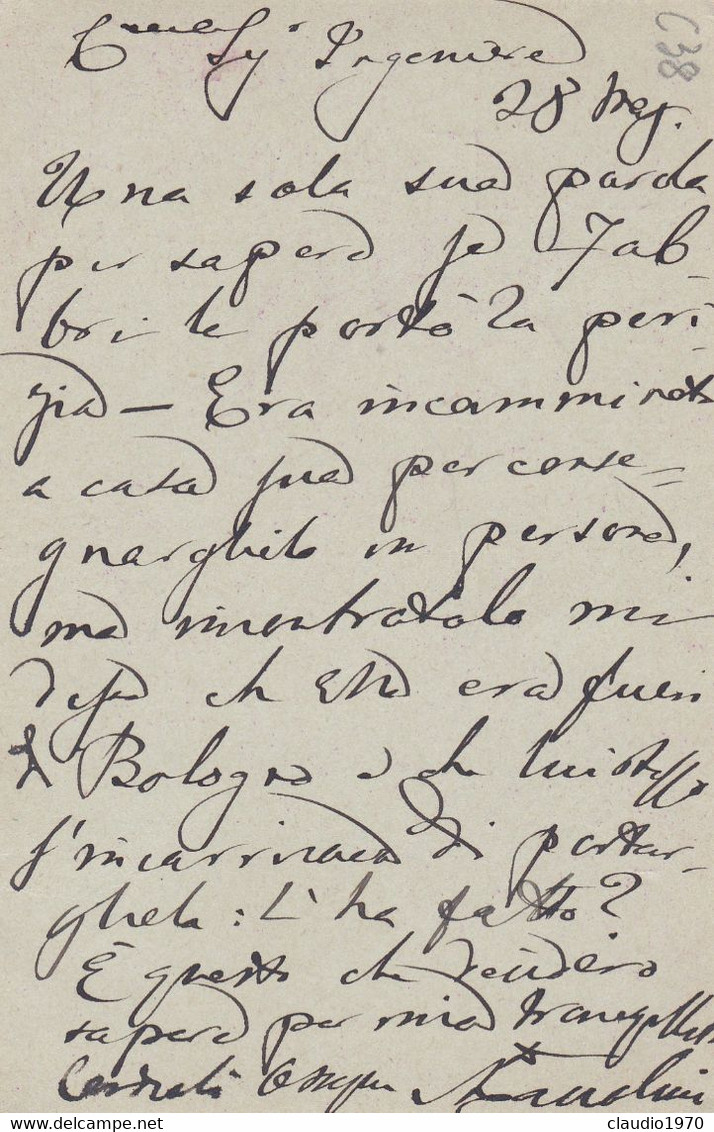 C38
Sigr Ingegnere
28 Mag.
Una sola sua parola
per sapere se Fab-
bri le portò la peri-
zia — Era incamminato
a casa sua per conse-
gnarglielo in persona,
ma incontratolo mi
disse che Ella era fuori
di Bologna e che lui stesso
s'incaricava di portar-
gliela: L'ha fatto?
È questo che desidero
sapere per mia tranquillità
Cordiali ossequi
claudio1970